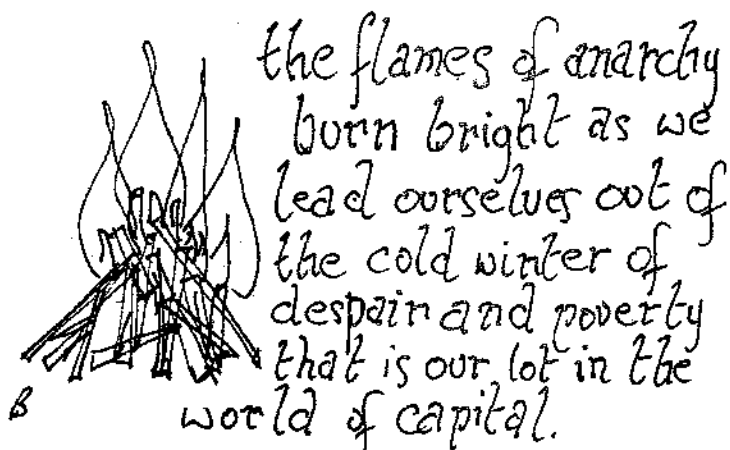 the flames of anarchy
burn bright as we
lead ourselves out of
the cold winter of
despair and poverty
that is our lot in the
world of capital.
B